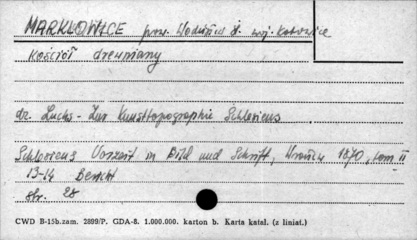 MARKŁOWICE pow. Wodzisław Śl. woj. Katowice
Kościół drewniany
dr. Luchs - Zur Kunsttopographie Schlesiens
Schlesiens Vorzeit in Bild und Schrift, 1870, tom II
13-14 Bericht
str. 28
CWD B-15b.zam. 2899/P. GDA-8. 1.000.000. karton b. Karta katal. (z liniat.)